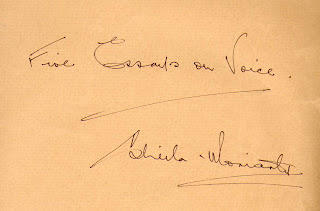 Five Essays on Voice.
Sheila Moriarty